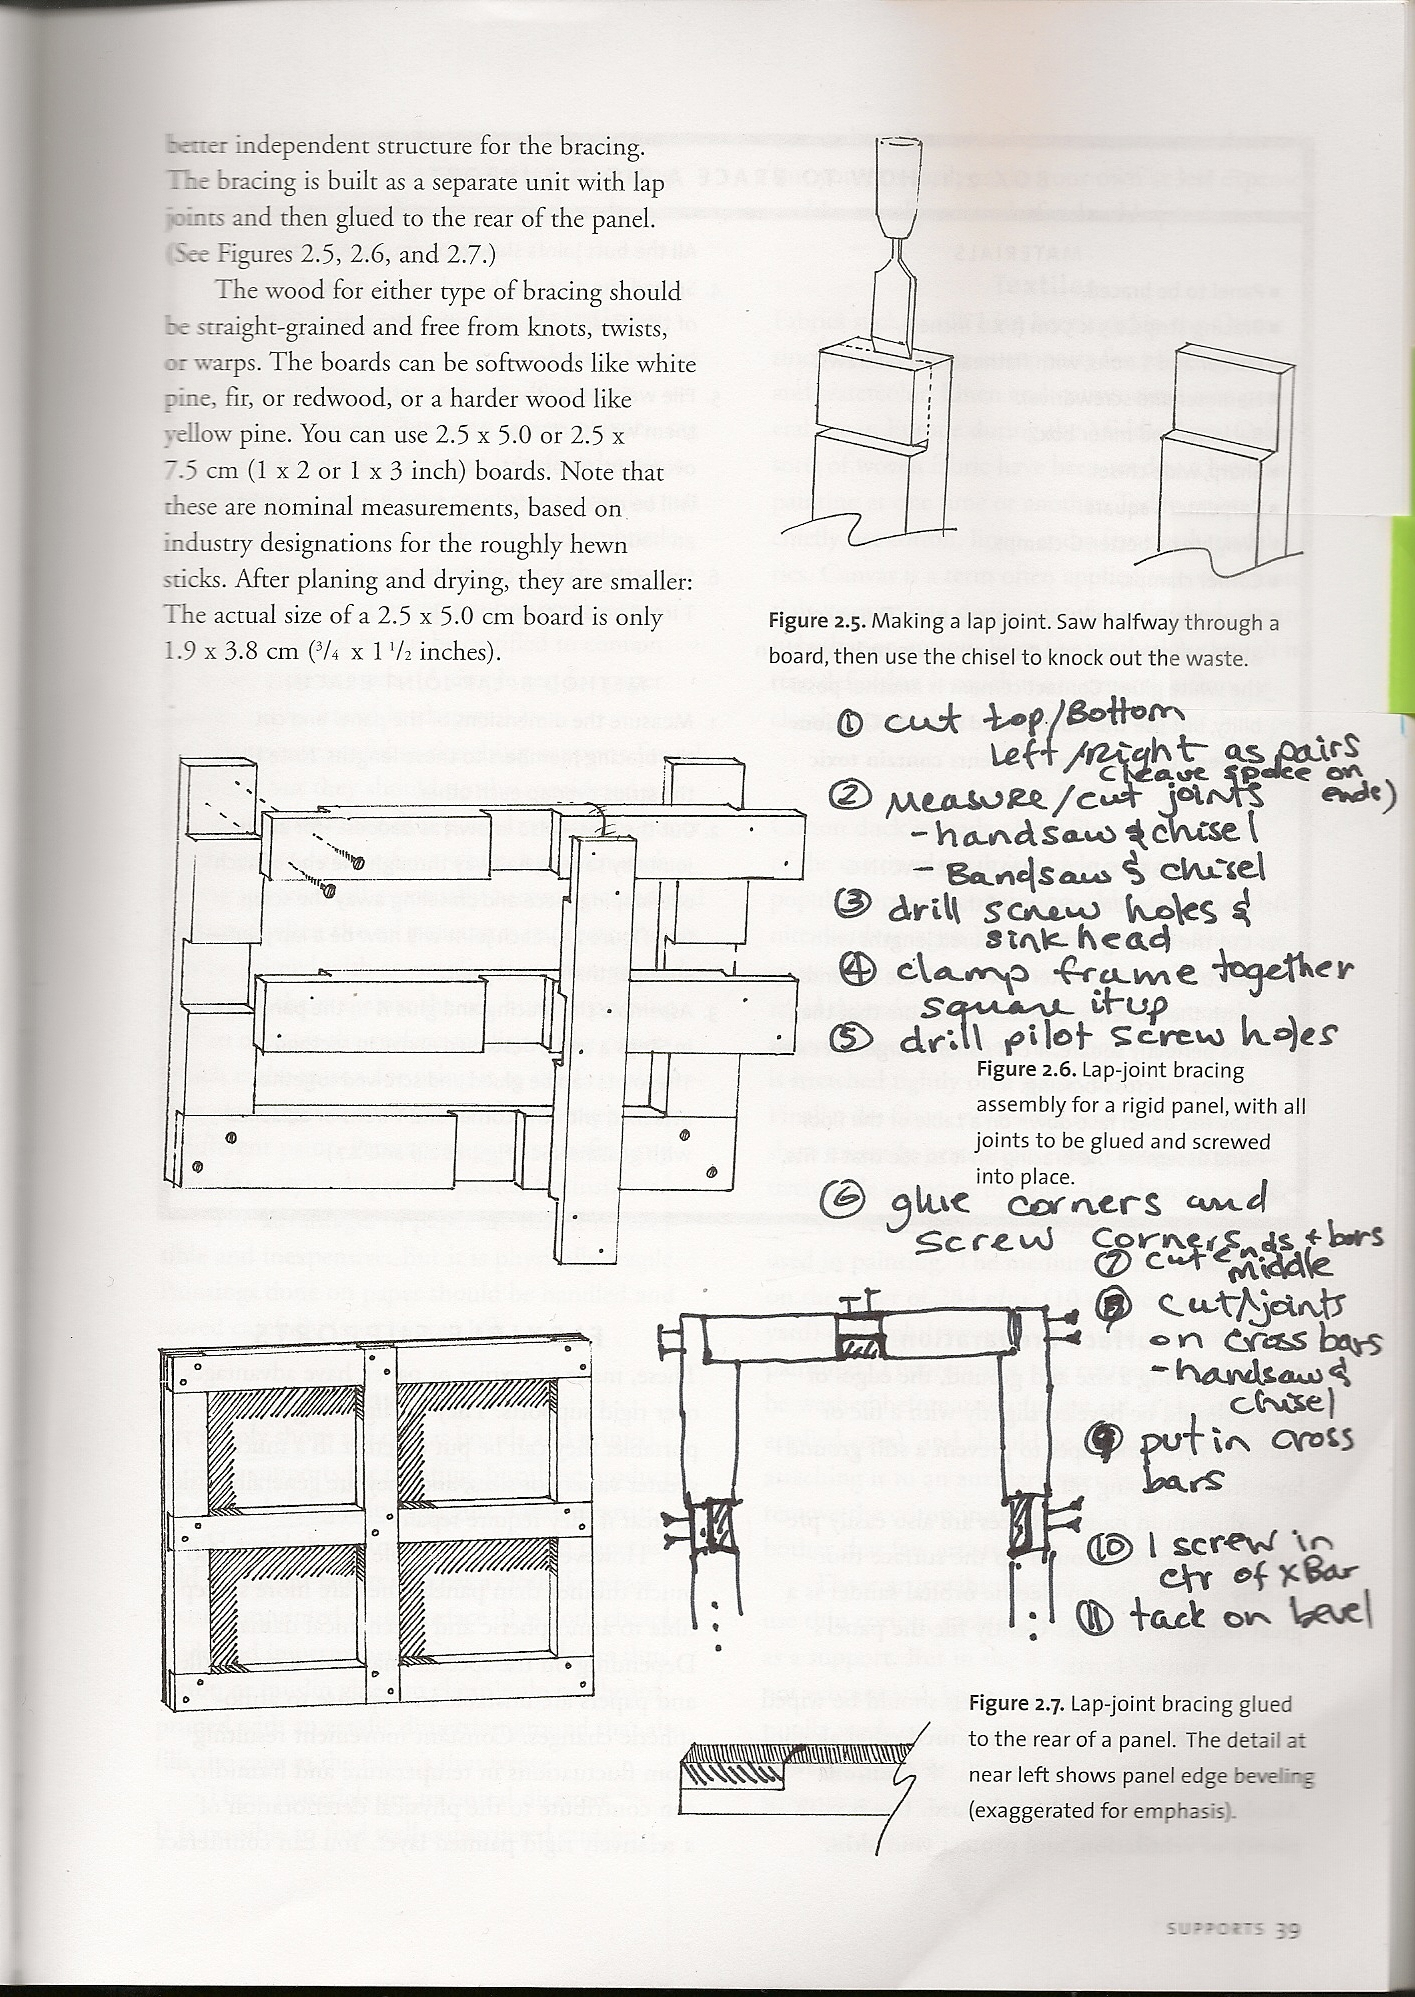 better independent structure for the bracing.
The bracing is built as a separate unit with lap
joints and then glued to the rear of the panel.
(See Figures 2.5, 2.6, and 2.7.)
The wood for either type of bracing should
be straight-grained and free from knots, twists,
or warps. The boards can be softwoods like white
pine, fir, or redwood, or a harder wood like
yellow pine. You can use 2.5 x 5.0 or 2.5 x
7.5 cm (1 x 2 or 1 x 3 inch) boards. Note that
these are nominal measurements, based on
industry designations for the roughly hewn
sticks. After planing and drying, they are smaller:
The actual size of a 2.5 x 5.0 cm board is only
1.9 x 3.8 cm (3/4 x 1 1/2 inches).
Figure 2.5. Making a lap joint. Saw halfway through a
board, then use the chisel to knock out the waste.
① cut top/Bottom
Left/Right as pairs
(leave space on
ends)
② Measure/cut joints
- handsaw & chisel
- Bandsaw & chisel
③ drill screw holes &
sink head
④ clamp frame together
square it up
⑤ drill pilot screw holes
Figure 2.6. Lap-joint bracing
assembly for a rigid panel, with all
joints to be glued and screwed
into place.
⑥ glue corners and
screw corners
⑦ cut ends + bars
middle
⑧ cut joints
on cross bars
- handsaw &
chisel
⑨ put in cross
bars
⑩ 1 screw in
ctr of xBar
⑪ tack on bevel
Figure 2.7. Lap-joint bracing glued
to the rear of a panel. The detail at
near left shows panel edge beveling
(exaggerated for emphasis).
SUPPORTS 39